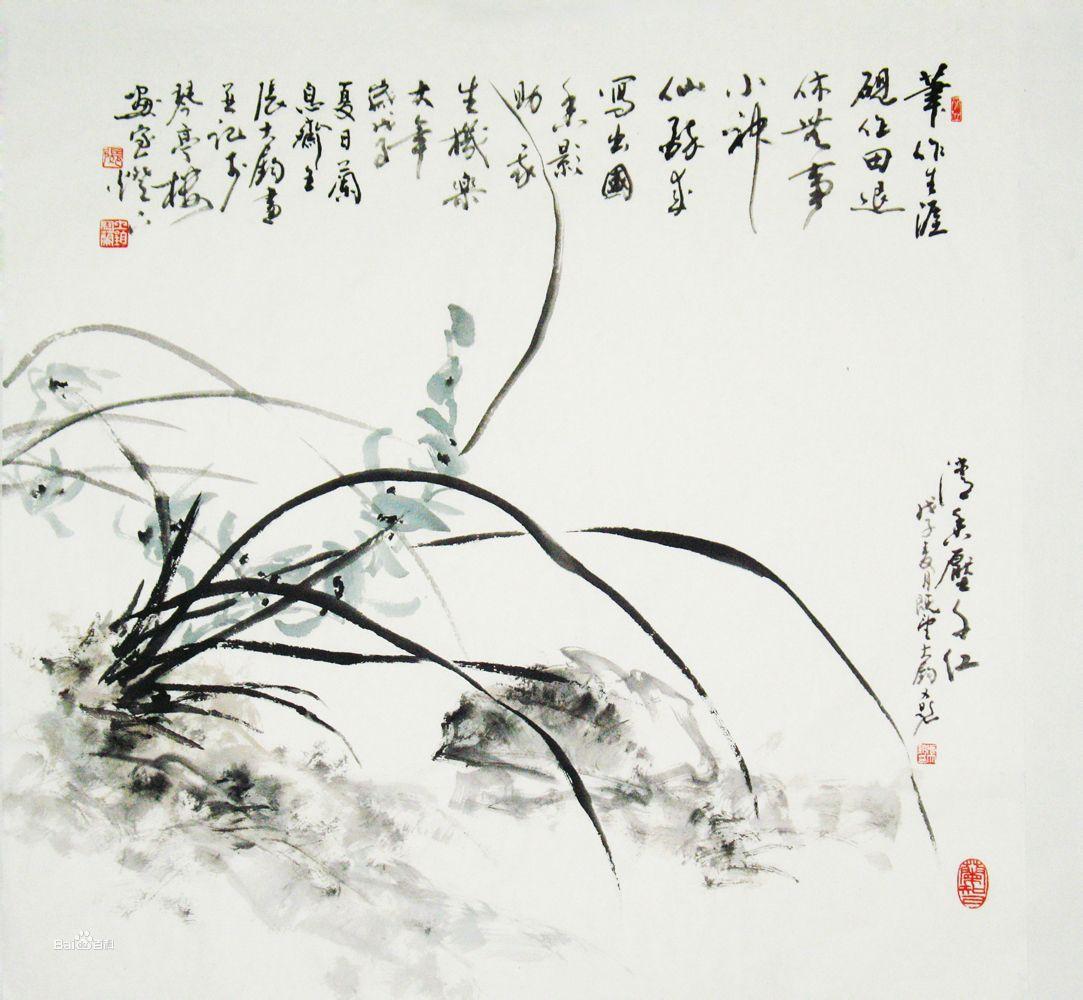 筆作生涯
硯作田退
休無事
小神
仙醉來
寫出國
香影
助我
生機樂
大年
歲戊子
夏日蘭
息齋主
張大鈞畫
並記於
琴亭樓
畫室燈下
清香壓千仁
戊子夏月既望大鈞
Bai百科